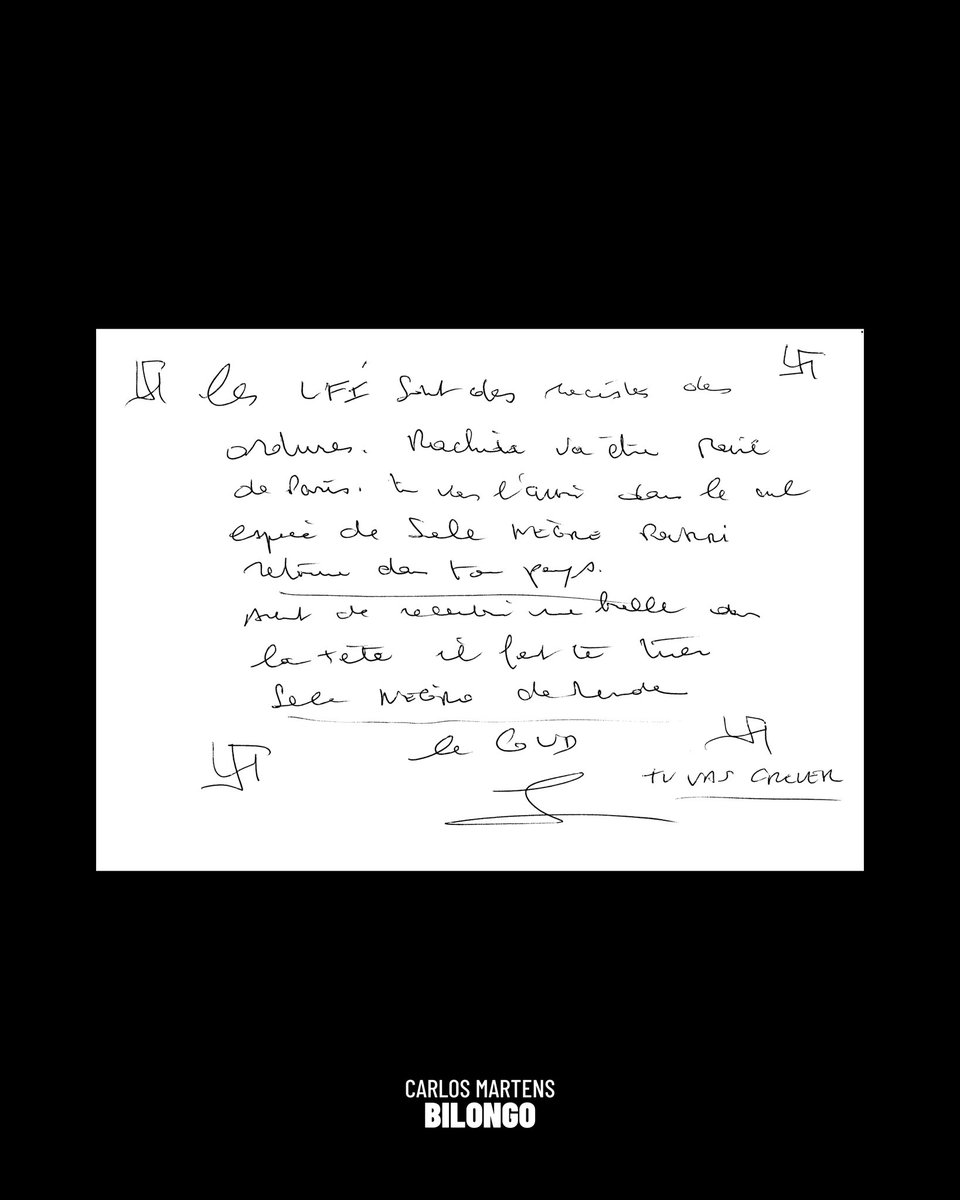 les LFI sont des racistes des
ordures. Rachida va être maire
de Paris. tu vas l'avoir dans le cul
espèce de Sale NÈGRE
retourne dans ton pays.
avant de recevoir une balle dans
la tête il faut te tuer
Sale NÈGRE de merde
le GUD
TU VAS CREVER
CARLOS MARTENS
BILONGO